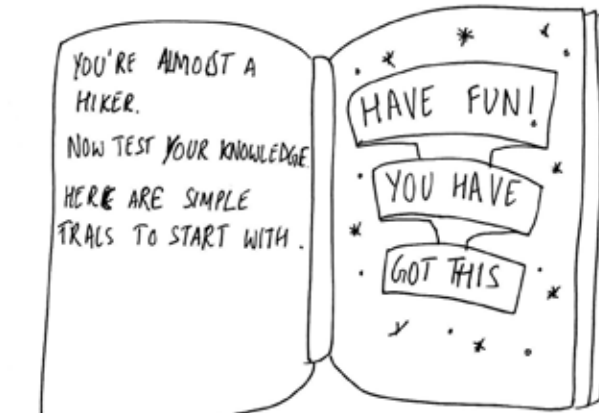 YOU'RE ALMOST A
HIKER.
NOW TEST YOUR KNOWLEDGE.
HERE ARE SIMPLE
TRALS TO START WITH.
HAVE FUN!
YOU HAVE
GOT THIS